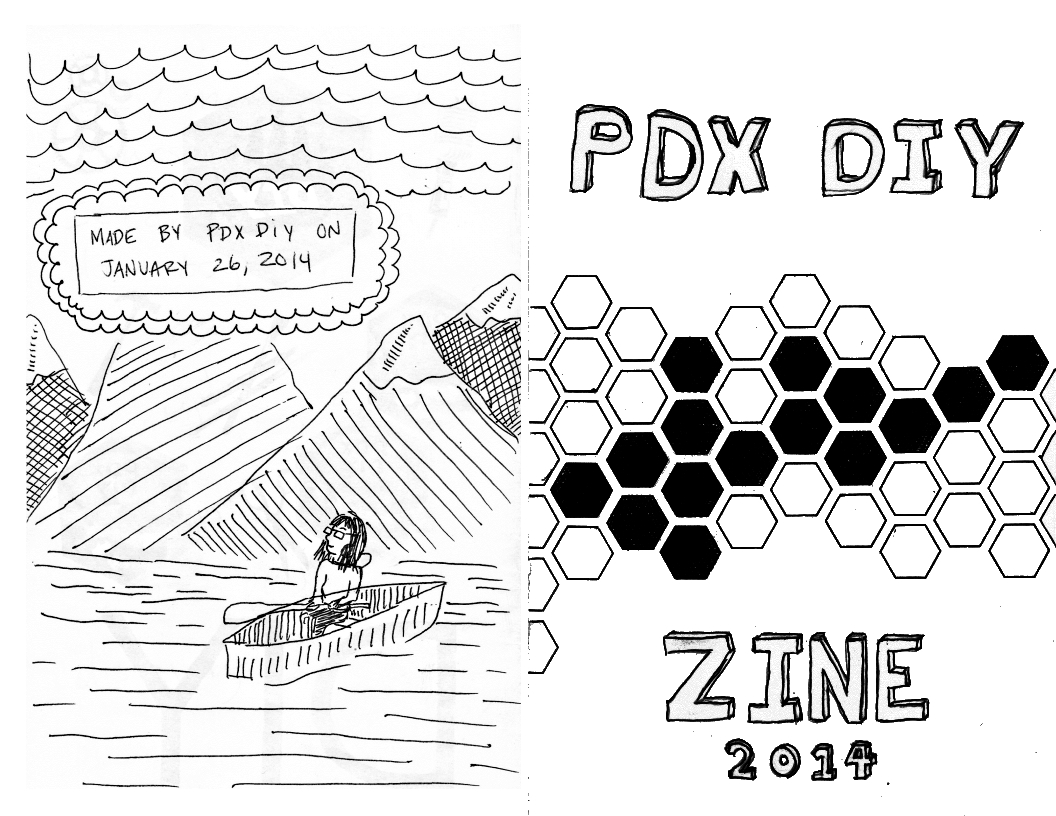 MADE BY PDX DiY ON
JANUARY 26, 2014
PDX DIY
ZINE
2014